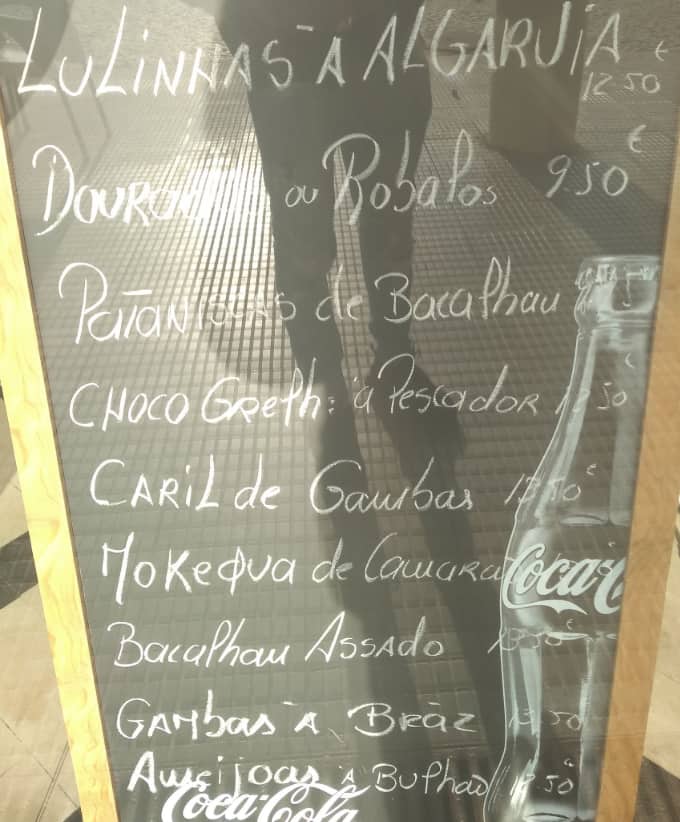 LuLinhas à ALGARVIA € 12.50
Douradas ou Robalos 9.50 €
Pataniscas de Bacalhau
CHOCO Grelh: à Pescador 12 50 €
CARIL de Gambas 13.50 €
Mokequa de Camara
Bacalhau Assado 13.50 €
GAMbas à Bràz 13.50
Ameijoas à Bulhão 12.50 €
Coca-Cola
Coca-C